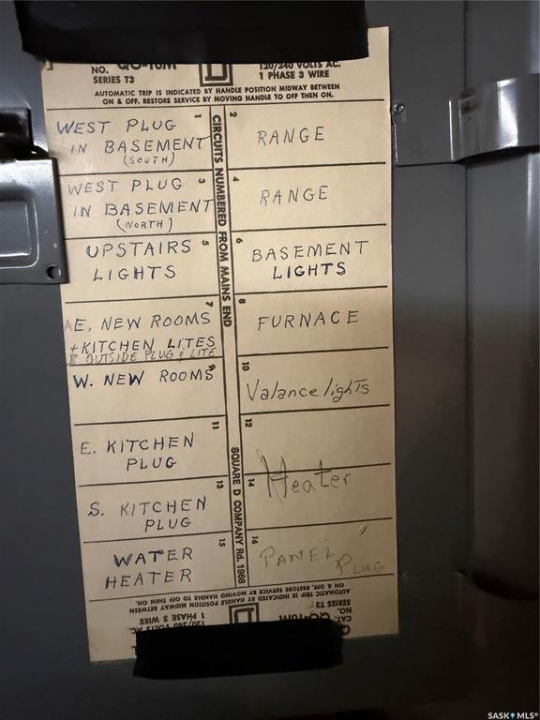 NO. QO-16M 120/240 VOLTS AC.
SERIES T3 1 PHASE 3 WIRE
AUTOMATIC TRIP IS INDICATED BY HANDLE POSITION MIDWAY BETWEEN
ON & OFF. RESTORE SERVICE BY MOVING HANDLE TO OFF THEN ON.
CIRCUITS NUMBERED FROM MAINS END
SQUARE D COMPANY Rd. 1968
1
WEST PLUG
IN BASEMENT
(SOUTH)
2
RANGE
3
WEST PLUG
IN BASEMENT
(NORTH)
4
RANGE
5
UPSTAIRS
LIGHTS
6
BASEMENT
LIGHTS
7
E. NEW ROOMS
+KITCHEN LITES
& OUTSIDE PLUG & LITE
8
FURNACE
9
W. NEW ROOMS
10
Valance lights
11
E. KITCHEN
PLUG
12
13
S. KITCHEN
PLUG
14
Heater
15
WATER
HEATER
16
PANEL
PLUG
AUTOMATIC TRIP IS INDICATED BY HANDLE POSITION MIDWAY BETWEEN
ON & OFF. RESTORE SERVICE BY MOVING HANDLE TO OFF THEN ON.
SERIES T3 1 PHASE 3 WIRE
CAT. NO. 120/240 VOLTS AC.
SASK MLS®